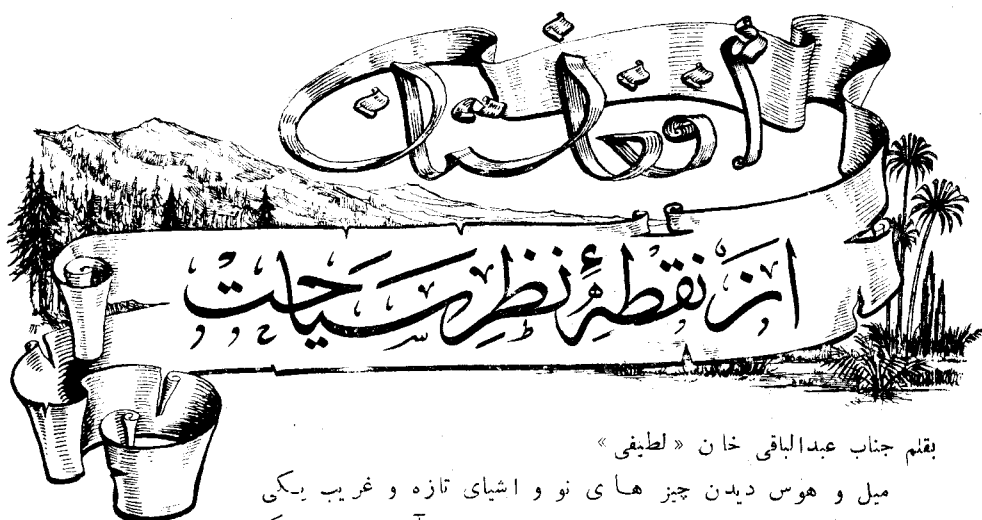 افغانستان
از نقطهٔ نظر سیاحت
بقلم جناب عبدالباقی خان « لطیفی »
میل و هوس دیدن چیز های نو و اشیای تازه و غریب یکی